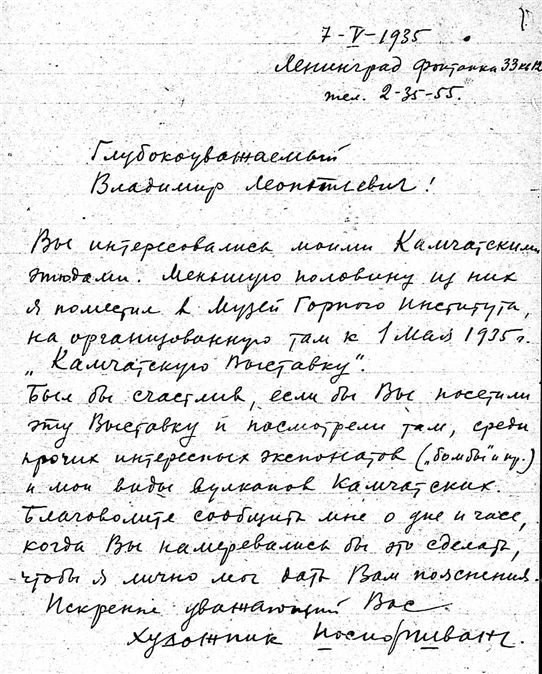 7-V-1935
Ленинград Фонтанка 33 кв 12
тел. 2-35-55.
Глубокоуважаемый
Владимир Леонтьевич!
Вы интересовались моими Камчатскими
этюдами. Меньшую половину из них
я поместил в Музей Горного Института,
на организованную там к 1 Мая 1935 г.
„Камчатскую Выставку".
Был бы счастлив, если бы Вы посетили
эту Выставку и посмотрели там, среди
прочих интересных экспонатов („бомбы" и пр.)
и мои виды вулканов Камчатских.
Благоволите сообщить мне о дне и часе,
когда Вы намеревались бы это сделать,
чтобы я лично мог дать Вам пояснения.
Искренне уважающий Вас
художник